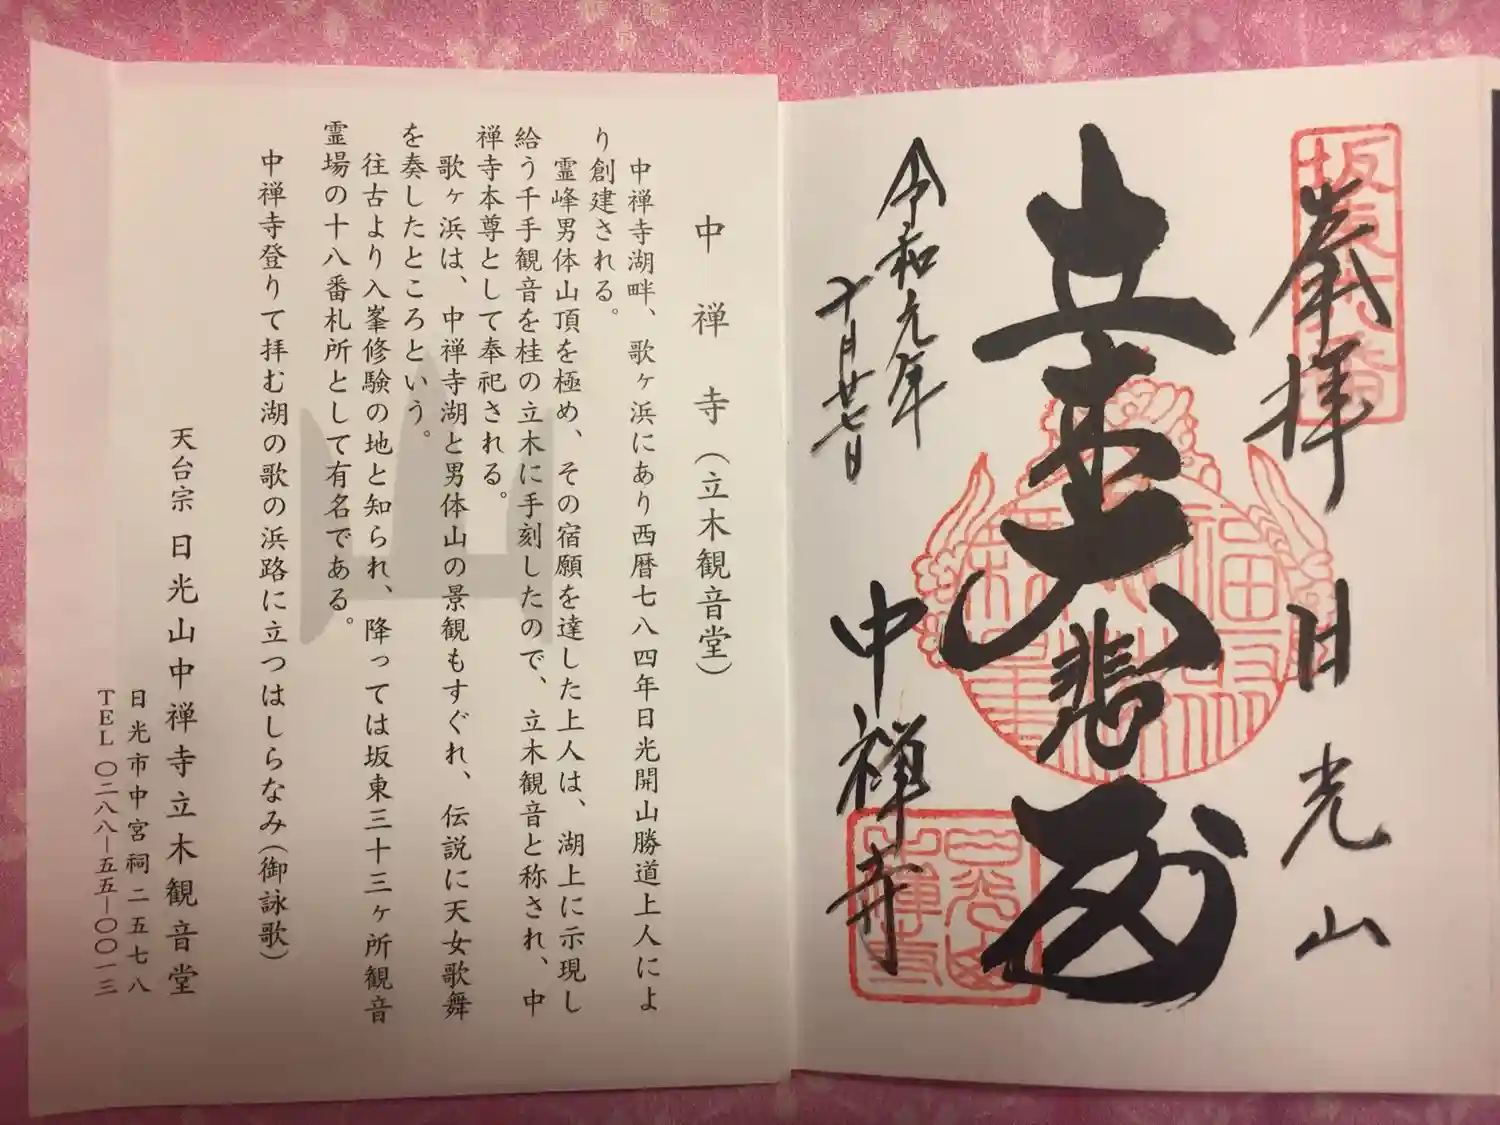 坂東十八番
奉拝
日光山
立木大悲殿
令和元年
十月廿七日
中禅寺
日光山
中禅寺
中禅寺(立木観音堂)
中禅寺湖畔、歌ヶ浜にあり西暦七八四年日光開山勝道上人によ
り創建される。
霊峰男体山頂を極め、その宿願を達した上人は、湖上に示現し
給う千手観音を桂の立木に手刻したので、立木観音と称され、中
禅寺本尊として奉祀される。
歌ヶ浜は、中禅寺湖と男体山の景観もすぐれ、伝説に天女歌舞
を奏したところという。
往古より入峯修験の地と知られ、降っては坂東三十三ヶ所観音
霊場の十八番札所として有名である。
中禅寺登りて拝む湖の歌の浜路に立つはしらなみ(御詠歌)
天台宗 日光山中禅寺立木観音堂
日光市中宮祠二五七八
TEL〇二八八―五五―〇〇一三